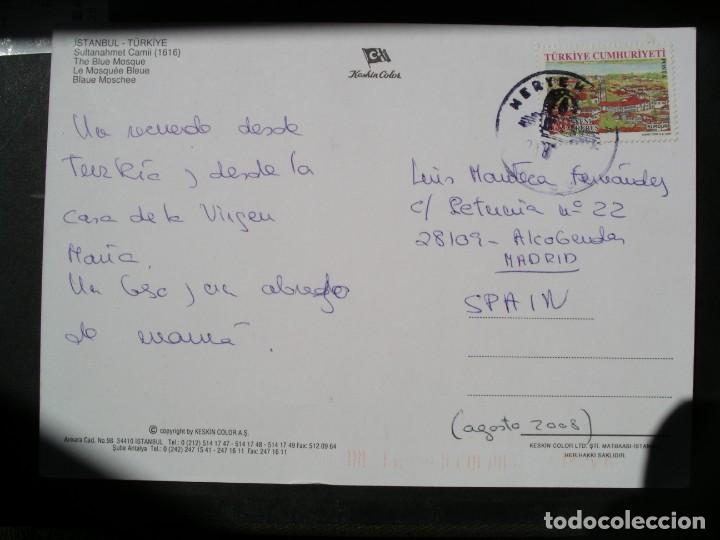 İSTANBUL - TÜRKİYE
Sultanahmet Camii (1616)
The Blue Mosque
Le Mosquée Bleue
Blaue Moschee
Keskin Color
TÜRKİYE CUMHURİYETİ
POSTA
MERYEM
Un recuerdo desde
Turkía y desde la
Casa de la Virgen
María.
Un beso y un abrazo
de mamá.
Luis Manteca Fernández
c/ Petunia nº 22
28109 - Alcobendas
MADRID
SPAIN
(agosto 2008)
© copyright by KESKIN COLOR A.Ş.
Ankara Cad. No.98 34410 ISTANBUL Tel.: 0 (212) 514 17 47 - 514 17 48 - 514 17 49 Fax: 512 09 64
Şube Antalya Tel.: 0 (242) 247 15 41 - 247 16 11 Fax: 247 16 11
KESKIN COLOR LTD. ŞTİ. MATBAASI-İSTANBUL
HER HAKKI SAKLIDIR.
todocoleccion
todocoleccion.net